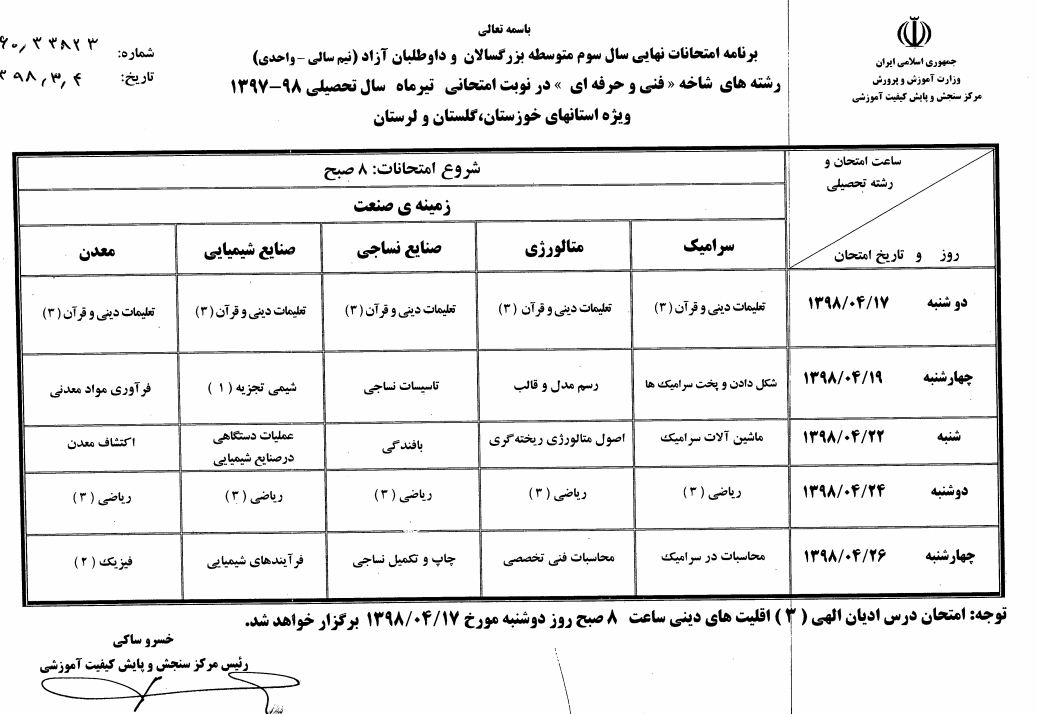 باسمه تعالی
جمهوری اسلامی ایران
وزارت آموزش و پرورش
مرکز سنجش و پایش کیفیت آموزشی
برنامه امتحانات نهایی سال سوم متوسطه بزرگسالان و داوطلبان آزاد (نیم سالی - واحدی)
رشته های شاخه « فنی و حرفه ای » در نوبت امتحانی تیرماه سال تحصیلی ۹۸-۱۳۹۷
ویژه استانهای خوزستان،گلستان و لرستان
شماره: ۶۰٫۳۳۸۲۳
تاریخ: ۳۹۸٫۳٫۴
ساعت امتحان و
رشته تحصیلی
روز و تاریخ امتحان
شروع امتحانات: ۸ صبح
زمینه ی صنعت
سرامیک متالورژی صنایع نساجی صنایع شیمیایی معدن
دو شنبه ۱۳۹۸/۰۴/۱۷ تعلیمات دینی و قرآن (۳) تعلیمات دینی و قرآن (۳) تعلیمات دینی و قرآن (۳) تعلیمات دینی و قرآن (۳) تعلیمات دینی و قرآن (۳)
چهارشنبه ۱۳۹۸/۰۴/۱۹ شکل دادن و پخت سرامیک ها رسم مدل و قالب تاسیسات نساجی شیمی تجزیه (۱) فرآوری مواد معدنی
شنبه ۱۳۹۸/۰۴/۲۲ ماشین آلات سرامیک اصول متالورژی ریخته‌گری بافندگی عملیات دستگاهی درصنایع شیمیایی اکتشاف معدن
دوشنبه ۱۳۹۸/۰۴/۲۴ ریاضی (۳) ریاضی (۳) ریاضی (۳) ریاضی (۳) ریاضی (۳)
چهارشنبه ۱۳۹۸/۰۴/۲۶ محاسبات در سرامیک محاسبات فنی تخصصی چاپ و تکمیل نساجی فرآیندهای شیمیایی فیزیک (۲)
توجه: امتحان درس ادیان الهی (۳) اقلیت های دینی ساعت ۸ صبح روز دوشنبه مورخ ۱۳۹۸/۰۴/۱۷ برگزار خواهد شد.
خسرو ساکی
رئیس مرکز سنجش و پایش کیفیت آموزشی